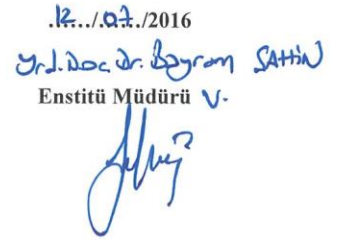 12/07/2016
Yrd. Doç. Dr. Bayram ŞAHİN
Enstitü Müdürü V.